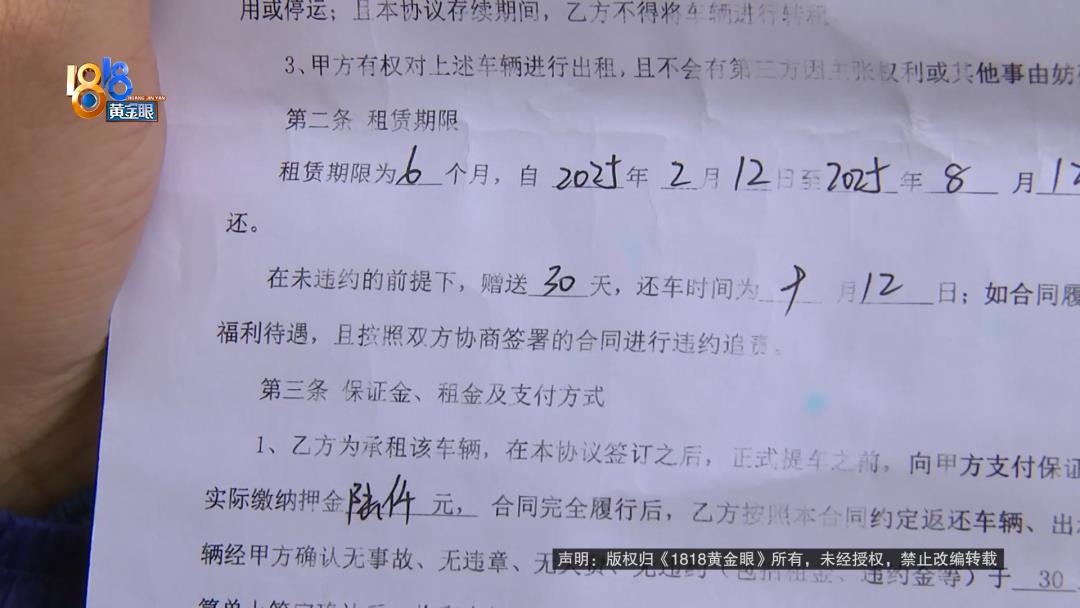 1818
HUANG JIN YAN
黄金眼
用或停运；且本协议存续期间，乙方不得将车辆进行转租
3、甲方有权对上述车辆进行出租，且不会有第三方因主张权利或其他事由妨
第二条 租赁期限
租赁期限为6个月，自2025年2月12日至2025年8月12
还。
在未违约的前提下，赠送30天，还车时间为9月12日；如合同履
福利待遇，且按照双方协商签署的合同进行违约追责。
第三条 保证金、租金及支付方式
1、乙方为承租该车辆，在本协议签订之后，正式提车之前，向甲方支付保证
实际缴纳押金陆仟元，合同完全履行后，乙方按照本合同约定返还车辆、出
辆经甲方确认无事故、无违章、无欠费、无违约（包括租金、违约金等）于30
声明：版权归《1818黄金眼》所有，未经授权，禁止改编转载